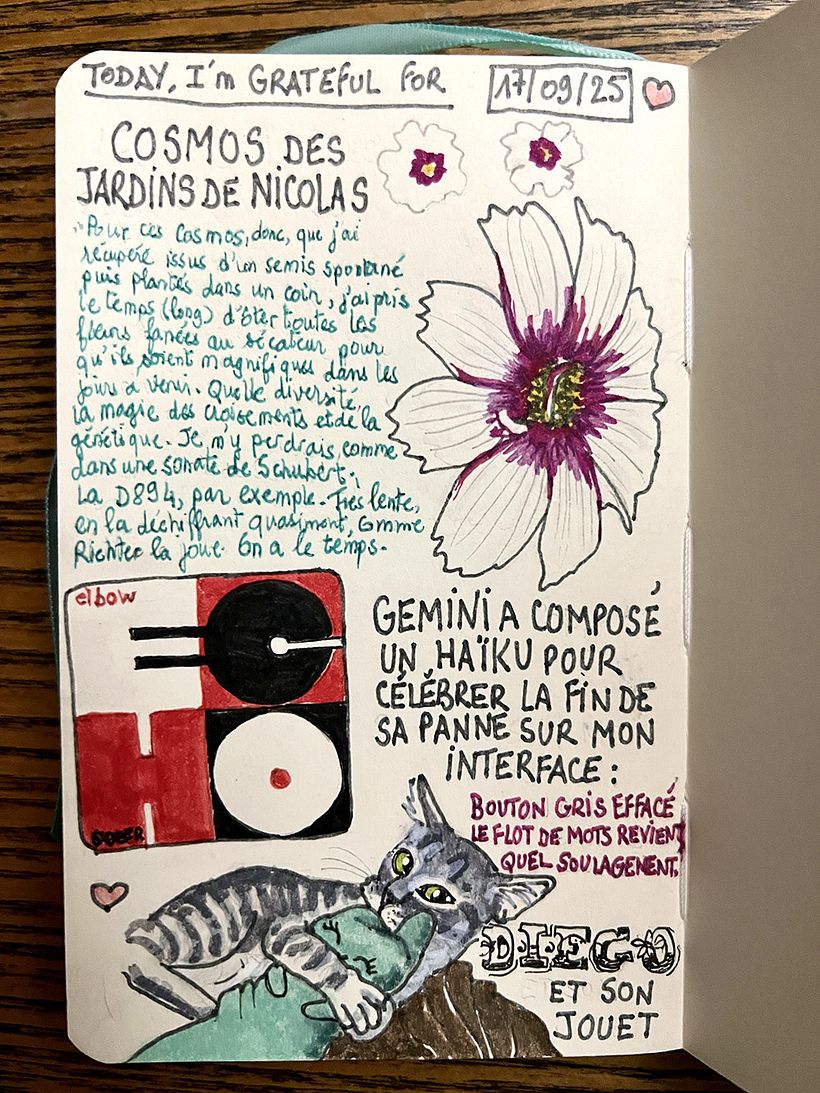 TODAY, I'm GRATEFUL FOR
17/09/25
COSMOS DES
JARDINS DE NICOLAS
Pour ces Cosmos, donc, que j'ai
récupéré issus d'un semis spontané
puis plantés dans un coin, j'ai pris
le temps (long) d'ôter toutes les
fleurs fanées au sécateur pour
qu'ils soient magnifiques dans les
jours à venir. Quelle diversité,
la magie des croisements et de la
génétique. Je m'y perdrais, comme
dans une sonate de Schubert.
La D894, par exemple. Très lente,
en la déchiffrant quasiment, comme
Richter la joue. On a le temps.
elbow
ECHO
GEMINI A COMPOSÉ
UN HAÏKU POUR
CÉLÉBRER LA FIN DE
SA PANNE SUR MON
INTERFACE :
BOUTON GRIS EFFACÉ
LE FLOT DE MOTS REVIENT
QUEL SOULAGEMENT.
DIEGO
ET SON
JOUET